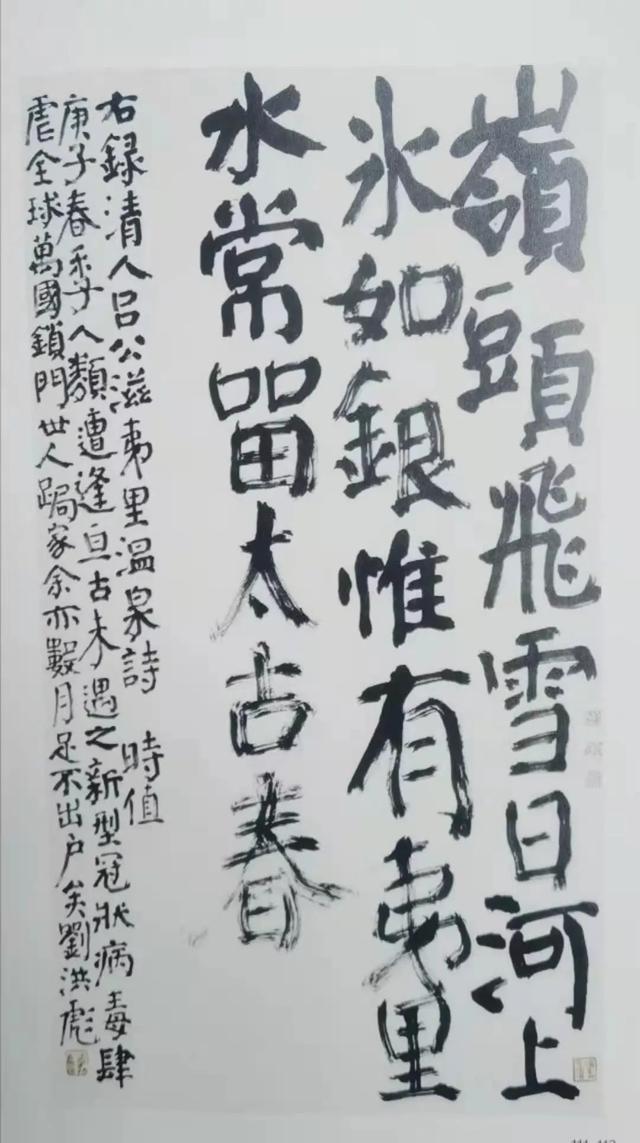 嶺頭飛雪日河上
氷如銀惟有夷里
水常㽞太古春
右録清人吕公滋夷里温泉詩 時值
庚子春季人類遭逢亘古未遇之新型冠狀病毒肆
虐全球萬國鎖門世人跼家余亦數月足不出户矣劉洪彪